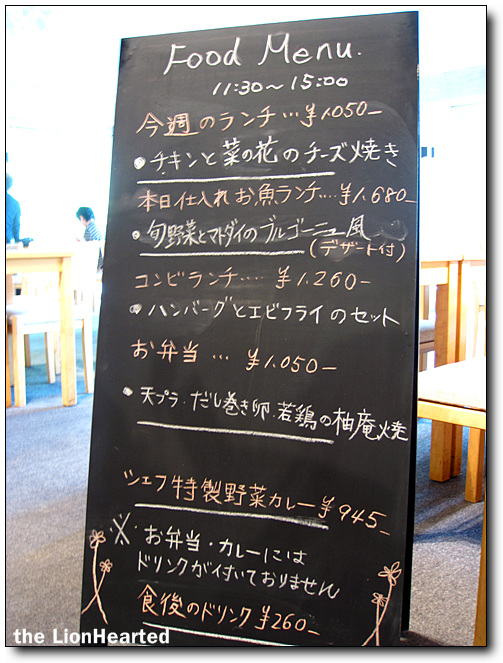 Food Menu.
11:30～15:00
今週のランチ…¥1.050-
・チキンと菜の花のチーズ焼き
本日仕入れお魚ランチ….¥1.680-
・旬野菜とマトダイのブルゴーニュ風
(デザート付)
コンビランチ…. ¥1.260-
・ハンバーグとエビフライのセット
お弁当 … ¥1.050-
・天プラ.だし巻き卵.若鶏の柚庵焼
シェフ特製野菜カレー¥945-
※ お弁当・カレーには
ドリンクが付いておりません
食後のドリンク ¥260-
the LionHearted